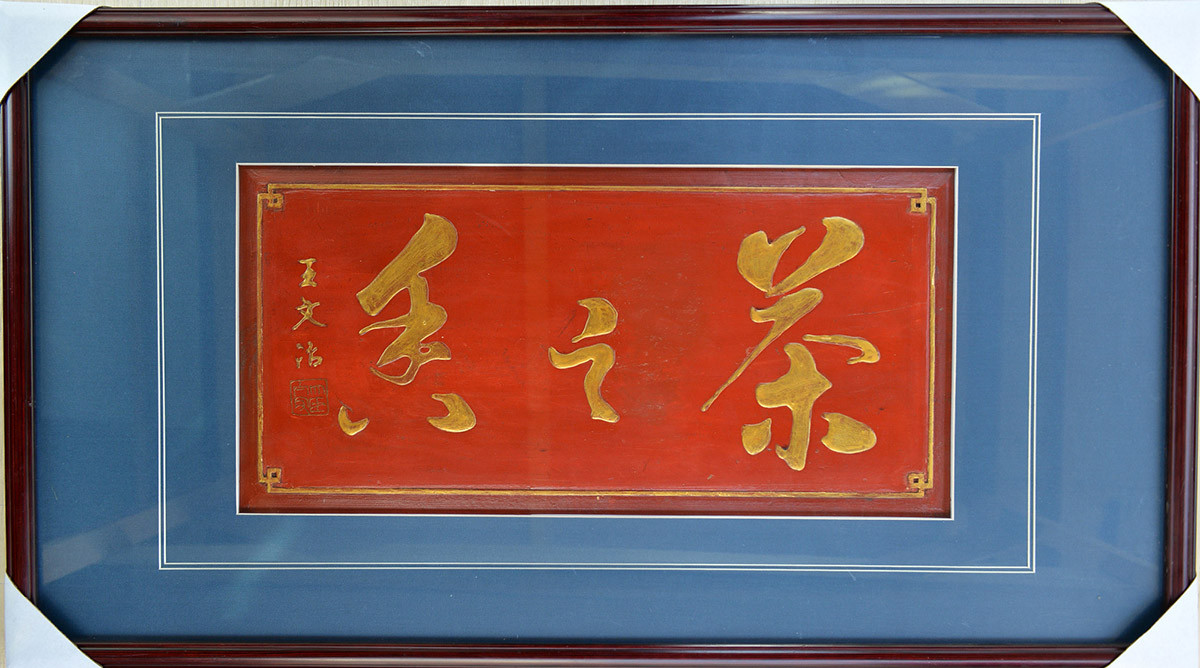 茶之
王文治